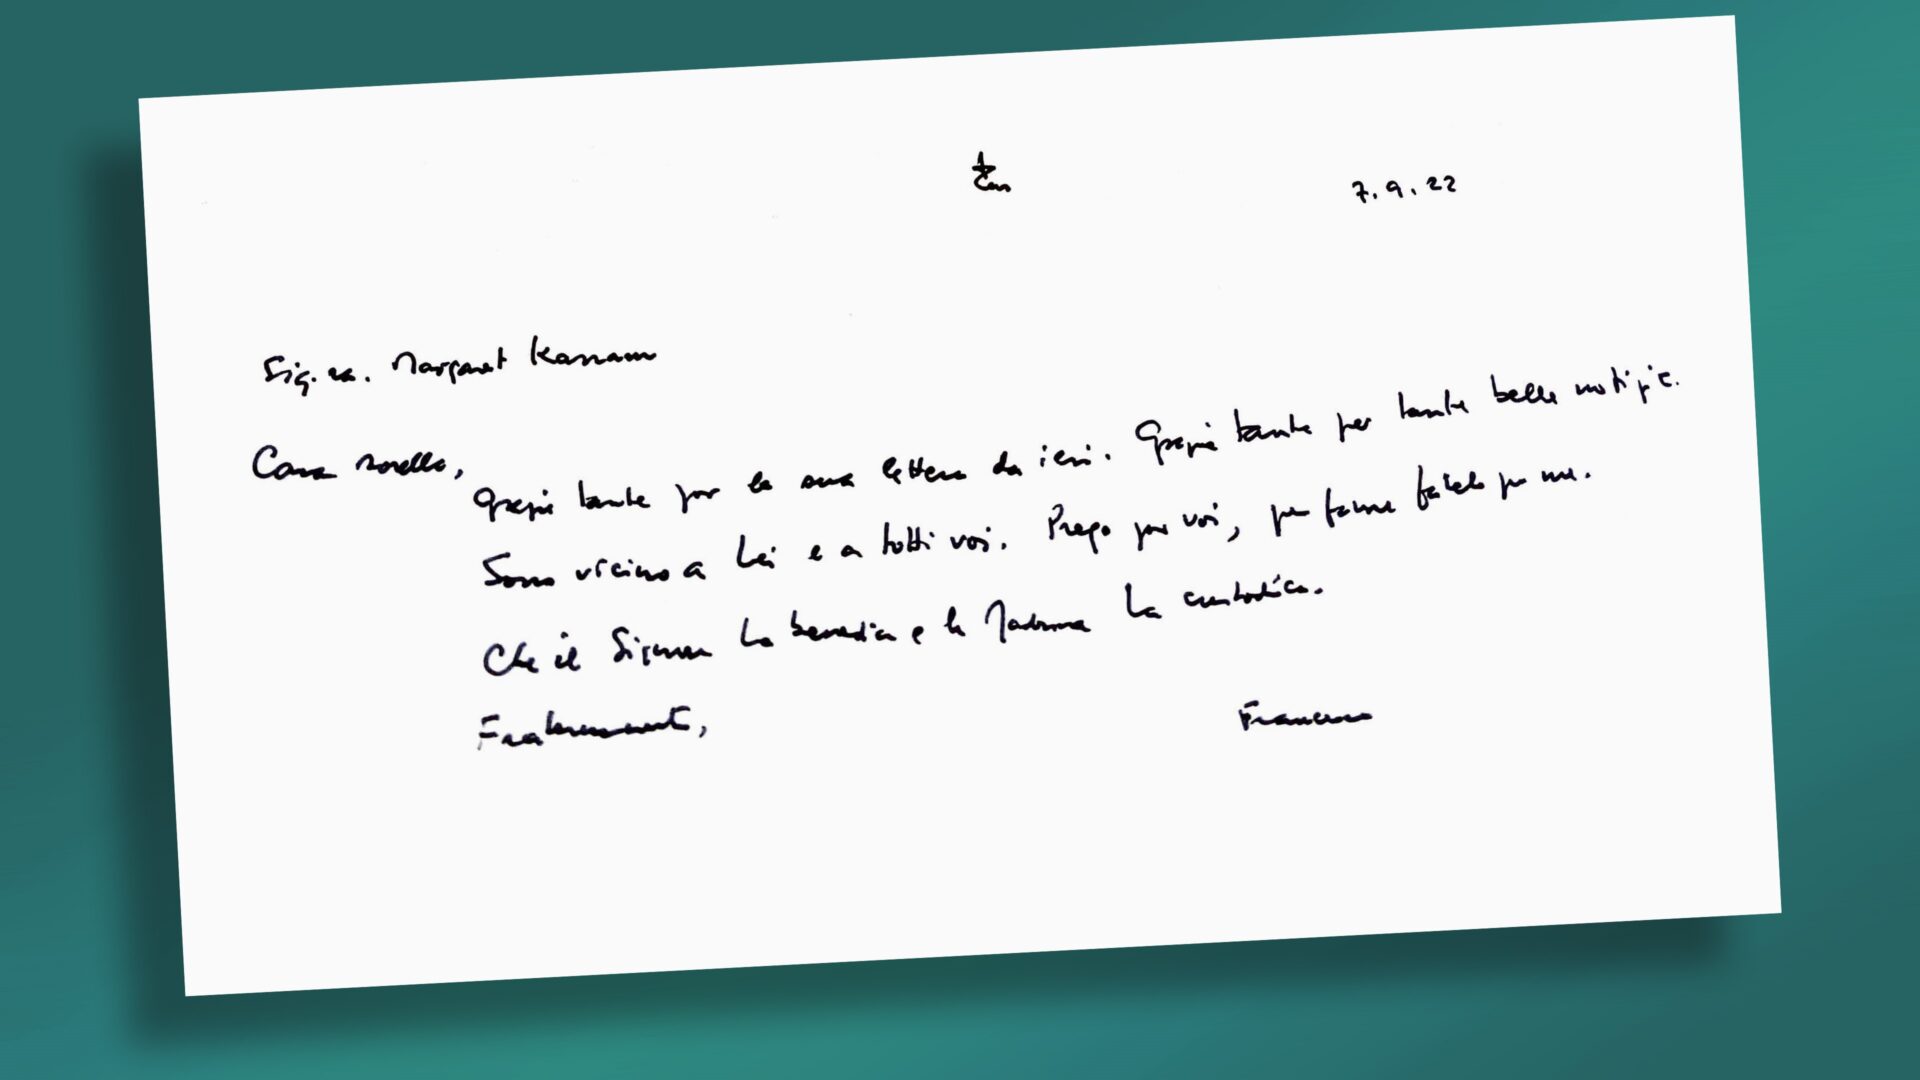 7.9.22
Sig.ra. Margaret Karram
Cara sorella,
Grazie tante per la sua lettera da ieri. Grazie tante per tante belle notizie.
Sono vicino a Lei e a tutti voi. Prego per voi, per favore fatelo per me.
Che il Signore La benedica e la Madonna La custodisca.
Fraternamente,
Francesco